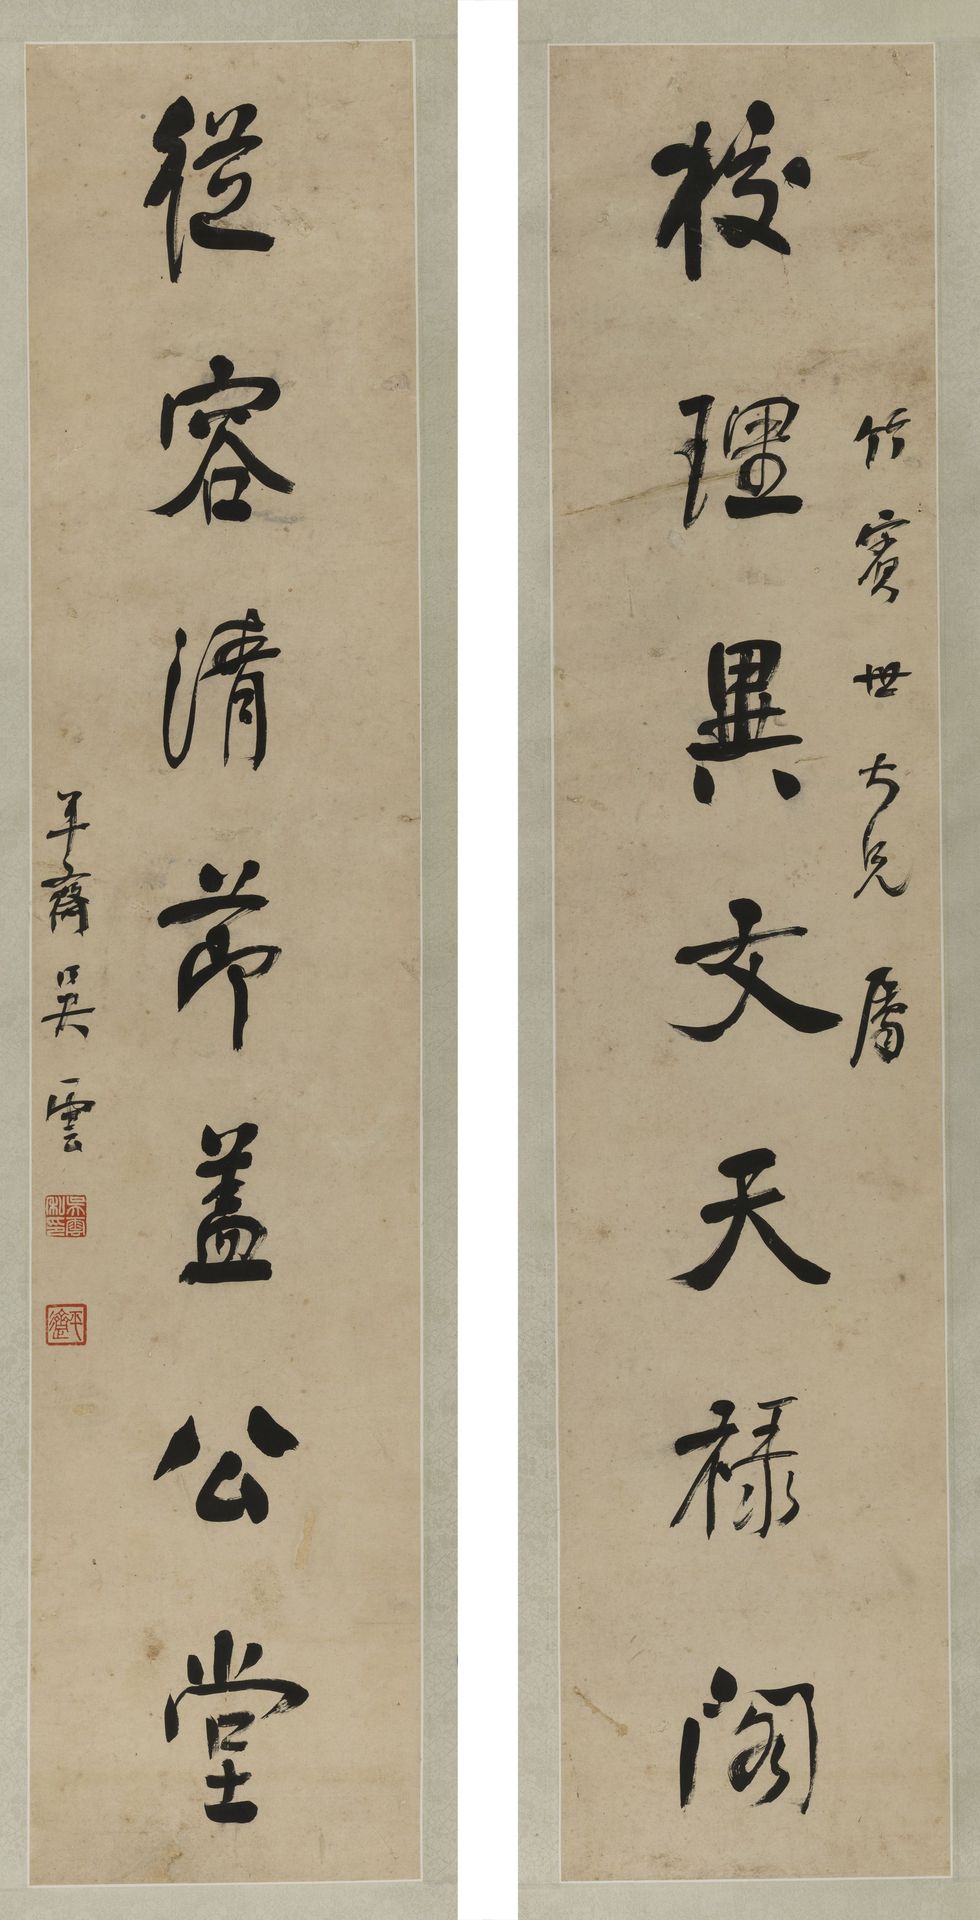 竹賓世大兄屬
校理異文天祿閣
從容清節蓋公堂
平齋吳雲
吳雲私印
平齋